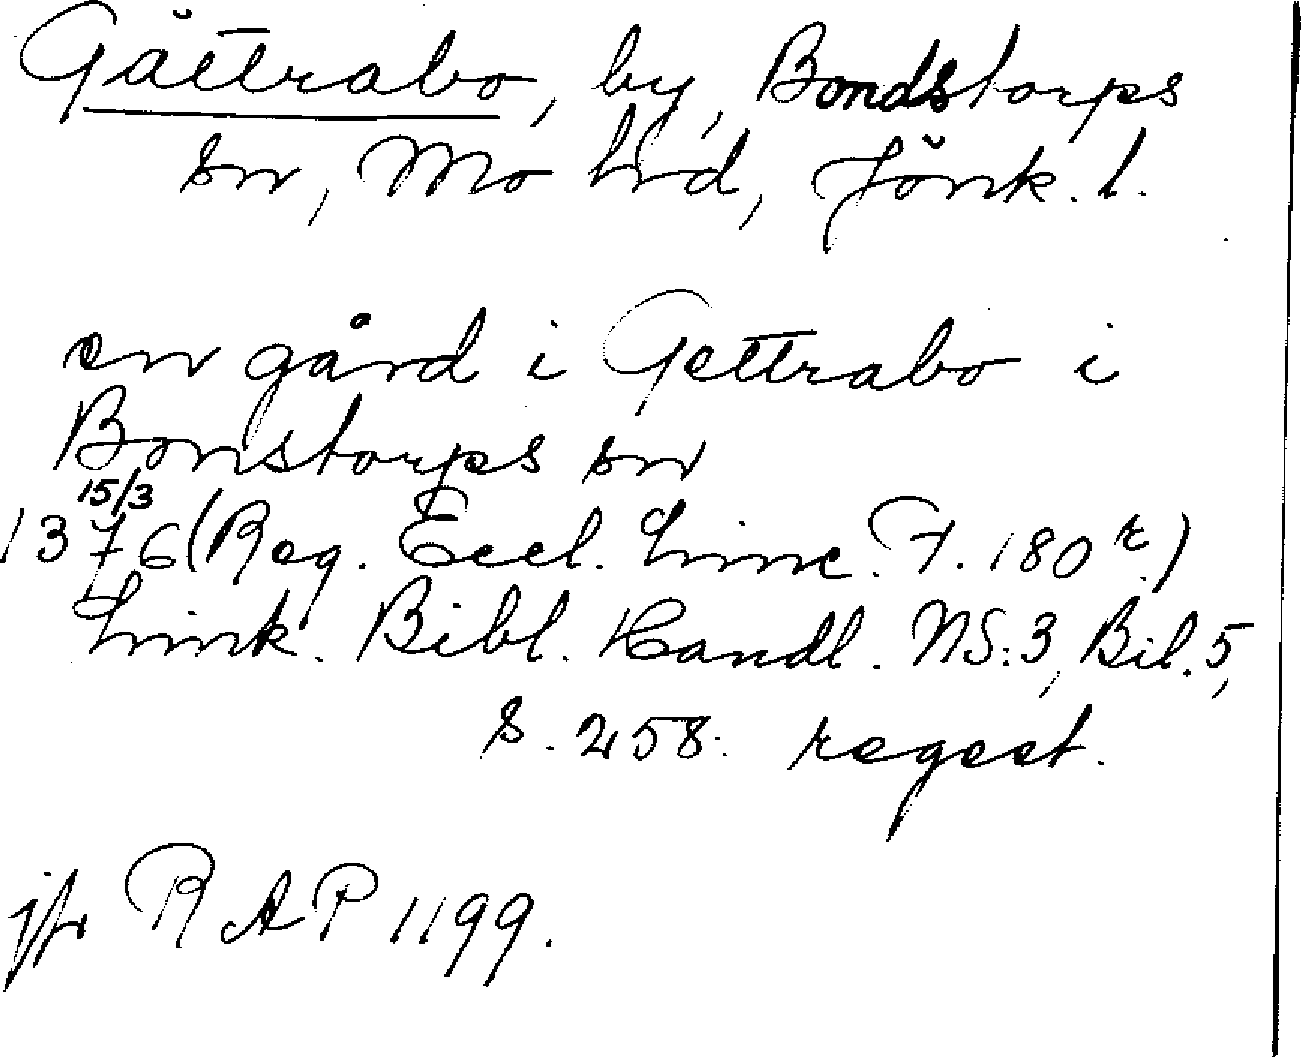 Gättrabo, by, Bondstorps
sn, Mo hrd, Jönk. l.
en gård i Gettrabo i
Bonstorps sn
15/3
1376 (Reg. Eccl. Linc. F. 180 r.)
Link. Bibl. Handl. NS:3, Bil. 5,
s. 258. regest.
jfr RAP 1199.